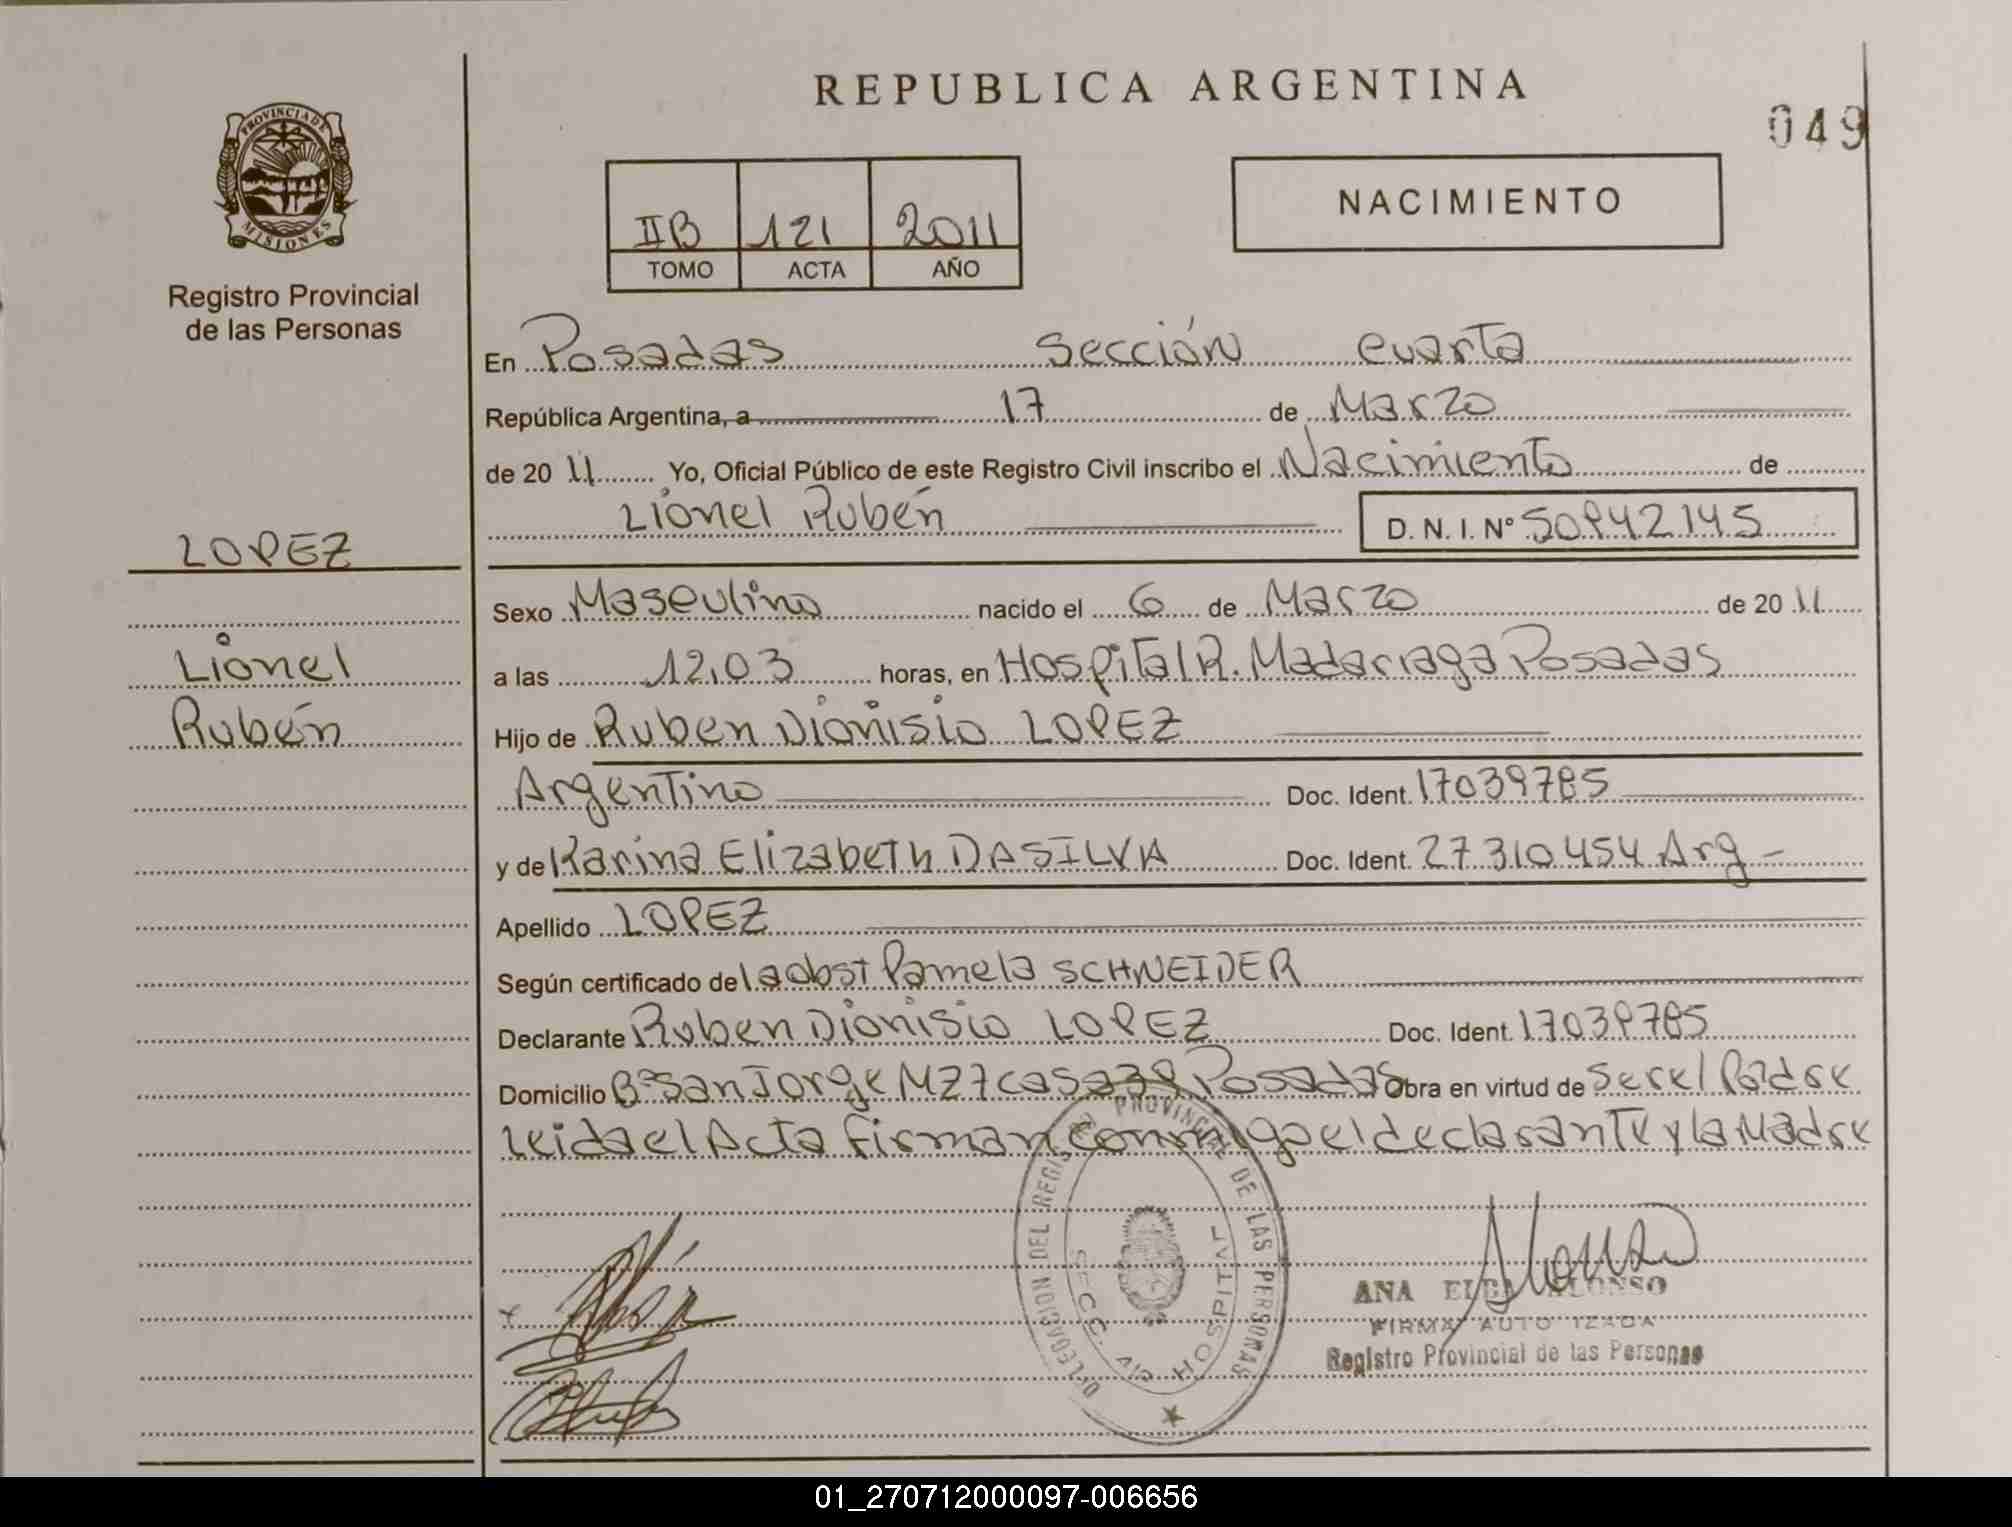 REPUBLICA ARGENTINA
049
PROVINCIA DE
MISIONES
Registro Provincial
de las Personas
IIB 121 2011
TOMO ACTA AÑO
NACIMIENTO
En Posadas Sección cuarta
República Argentina, a 17 de Marzo
de 2011 Yo, Oficial Público de este Registro Civil inscribo el Nacimiento de
Lionel Rubén D. N. I. Nº 50942145
LOPEZ
Lionel
Rubén
Sexo Masculino nacido el 6 de Marzo de 2011
a las 12,03 horas, en Hospital R. Madariaga Posadas
Hijo de Ruben Dionisio LOPEZ
Argentino Doc. Ident. 17039785
y de Karina Elizabeth DASILVA Doc. Ident. 27310454 Arg -
Apellido LOPEZ
Según certificado de la obst Pamela SCHNEIDER
Declarante Ruben Dionisio LOPEZ Doc. Ident. 17039785
Domicilio Bº San Jorge MZ 7 casa 39 Posadas Obra en virtud de ser el Padre
Leida el Acta firman conmigo el declarante y la Madre
DELEGACION DEL REGISTRO PROVINCIAL DE LAS PERSONAS
SECC. HOSPITAL
ANA ELBA ALONSO
FIRMA AUTORIZADA
Registro Provincial de las Personas
01_270712000097-006656